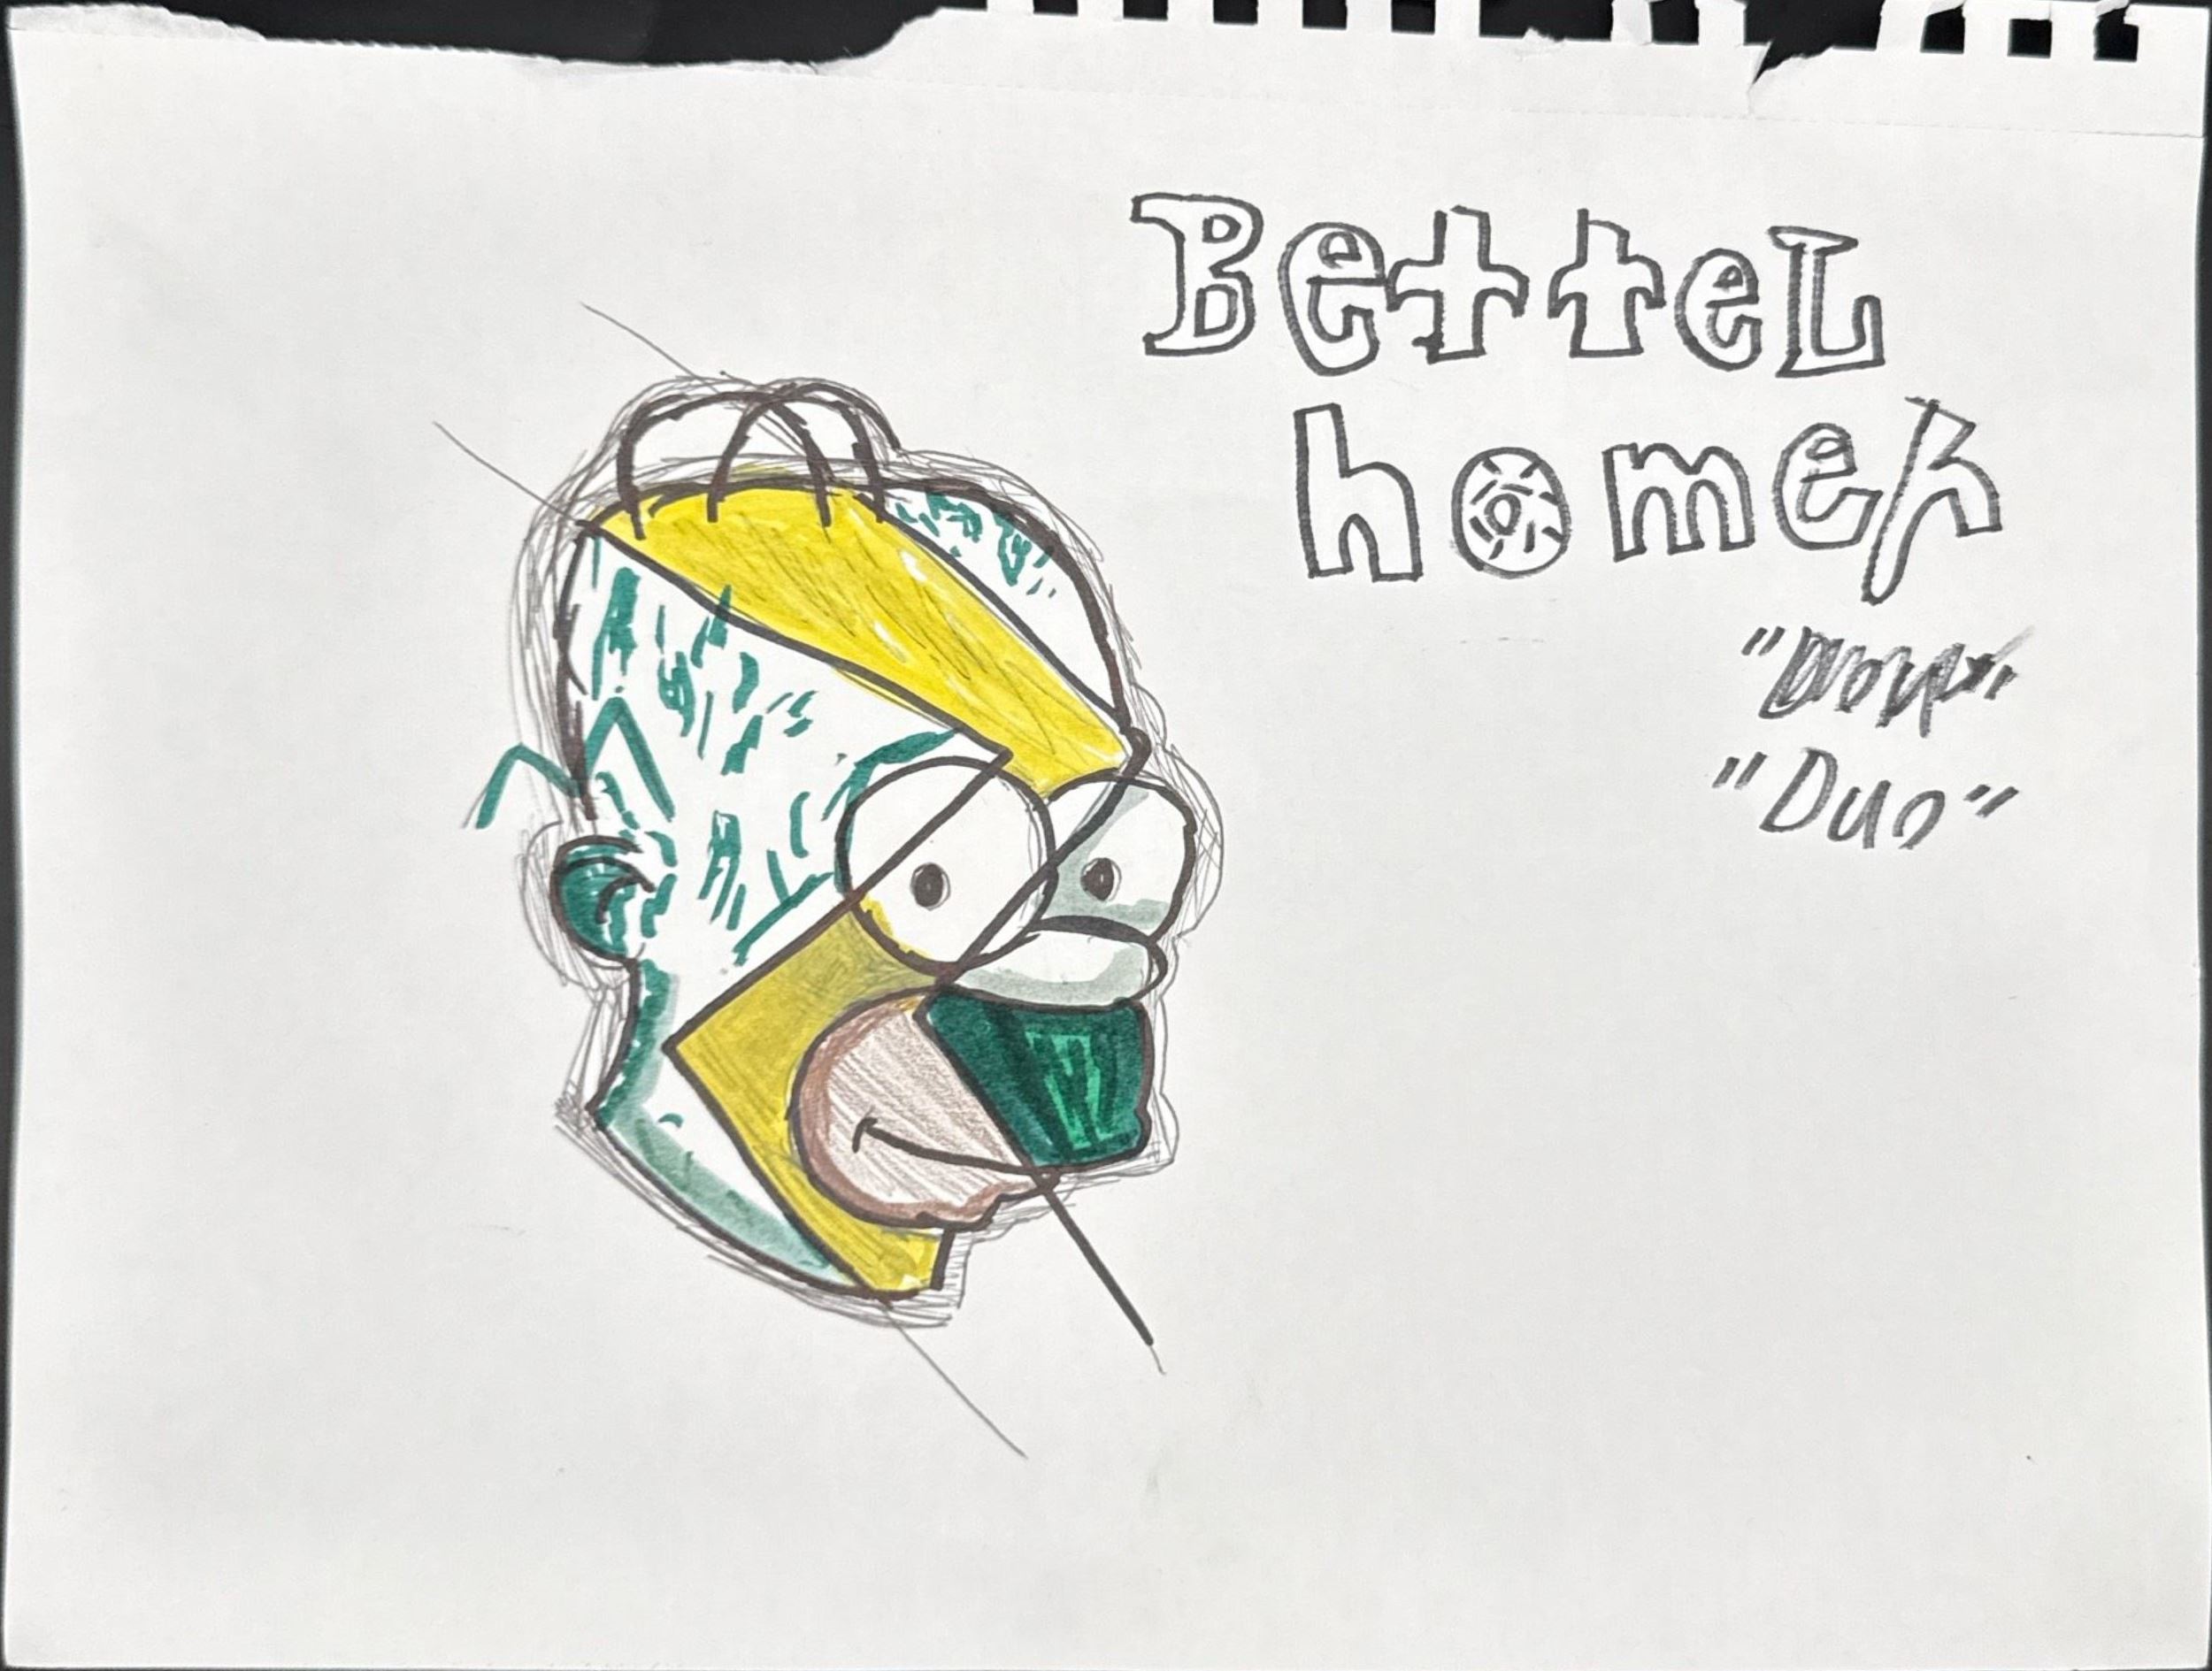 BetteL
homer
"Duo"